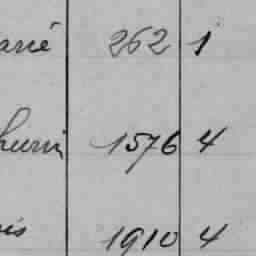 arié 262 1
hurin 1576 4
is 1910 4